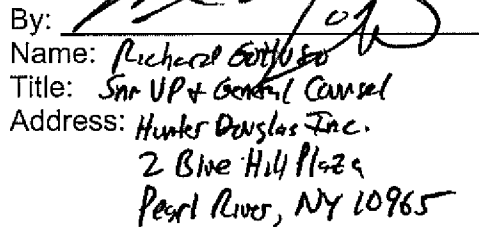 By:
Name: Richard
Title: Snr VP & General Counsel
Address: Hunter Douglas Inc.
2 Blue Hill Plaza
Pearl River, NY 10965